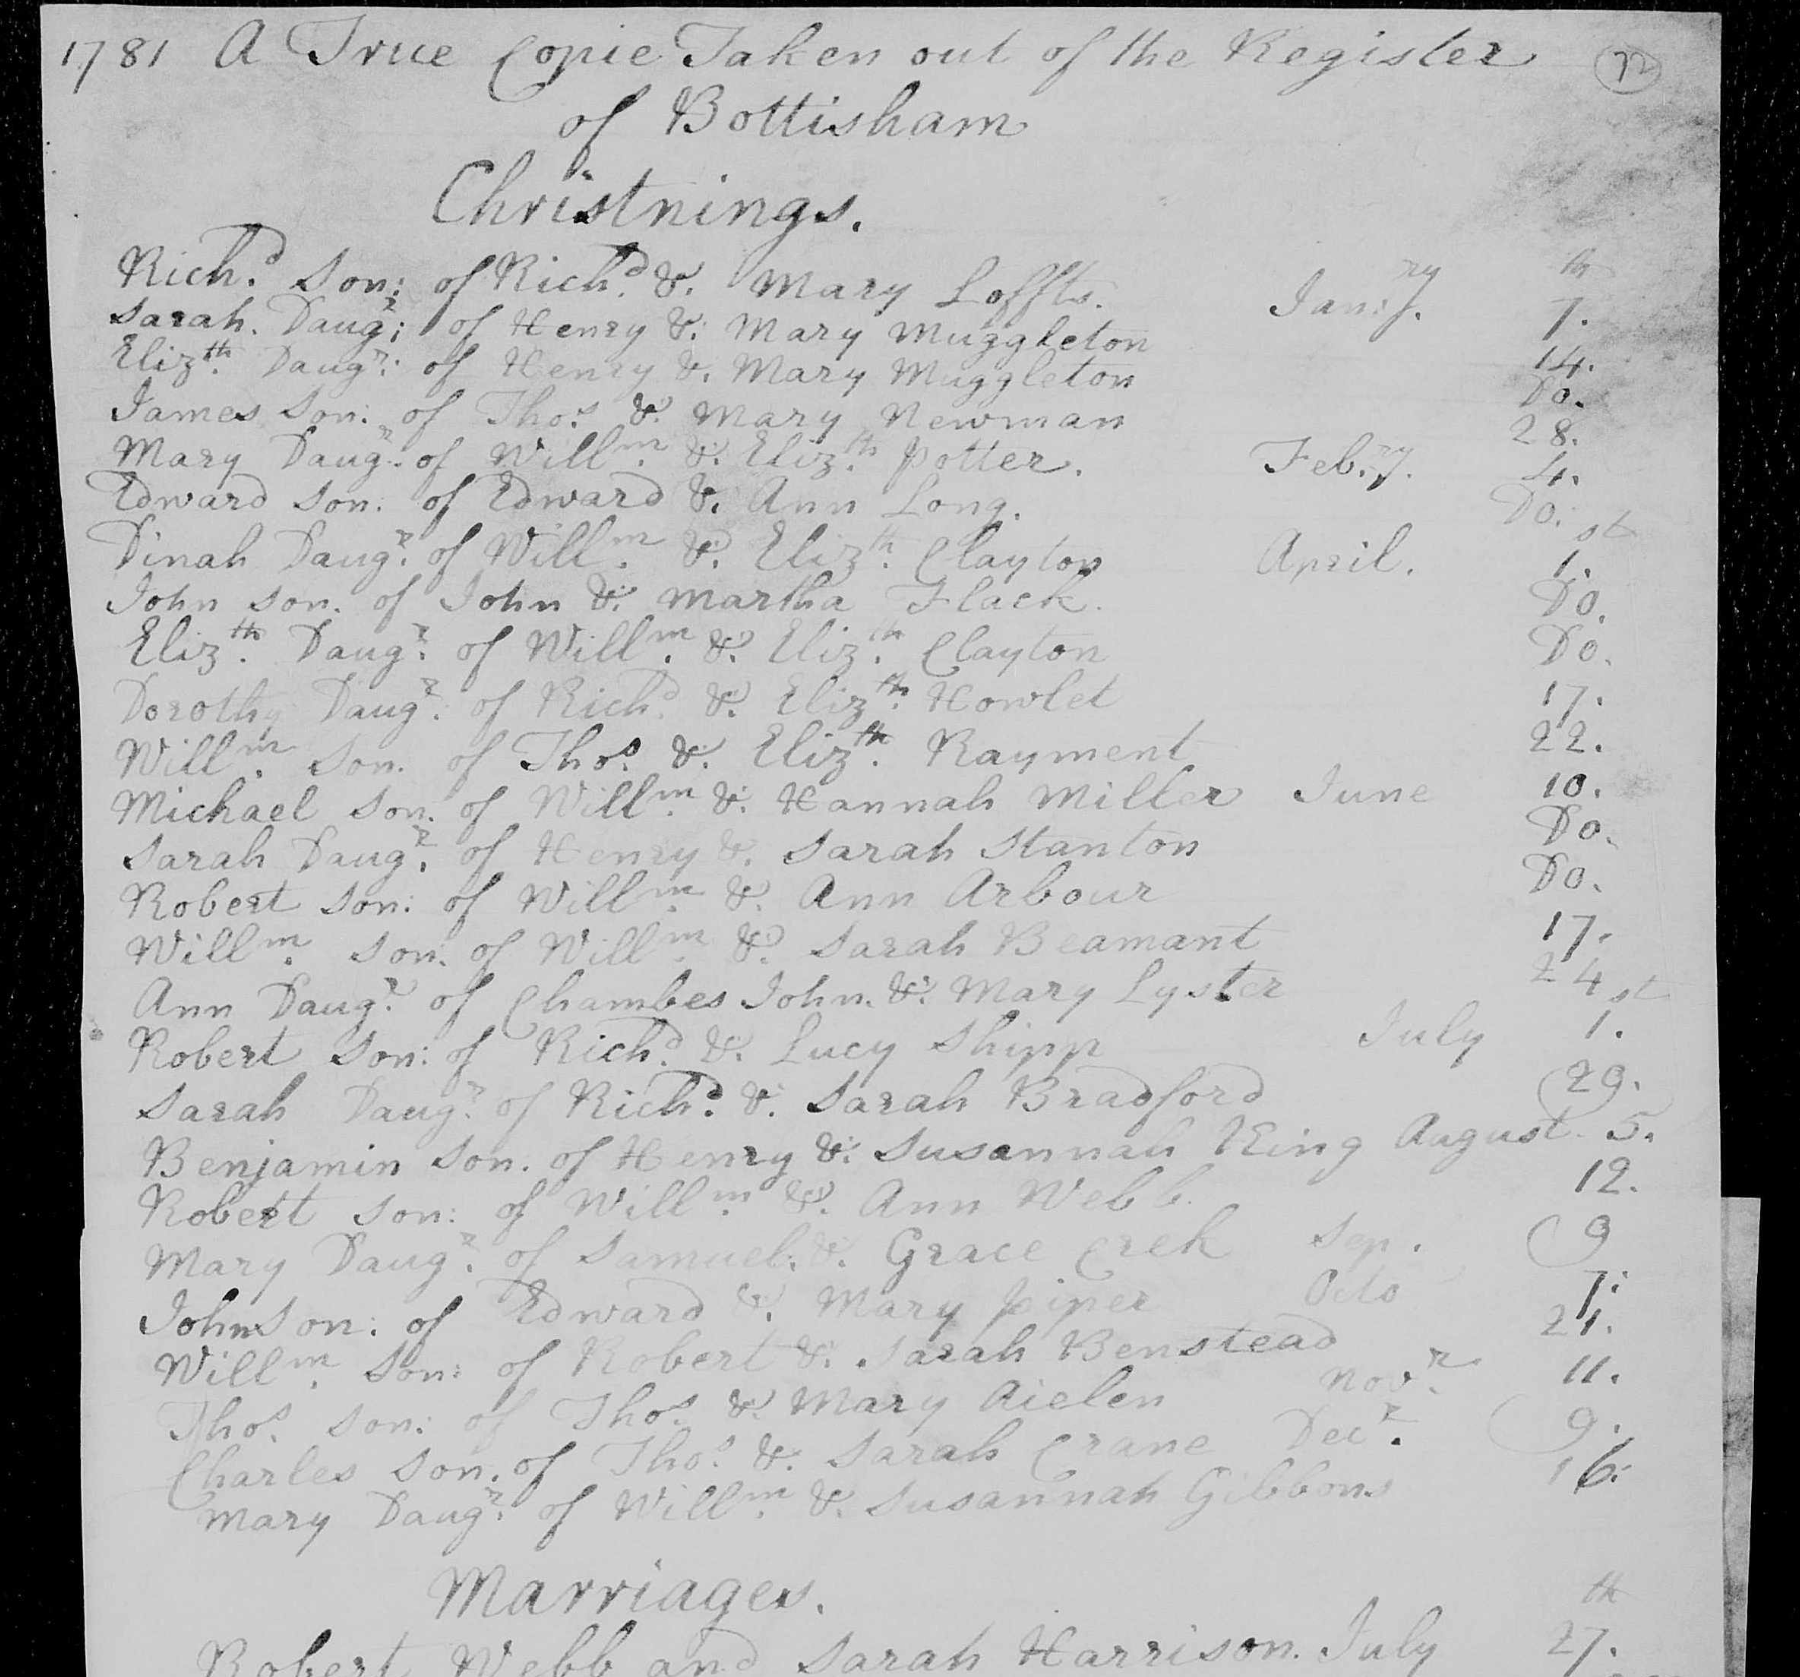 1781 A True Copie Taken out of the Register 72
of Bottisham
Christnings.
Rich.d Son: of Rich.d &. Mary Loffts. Jan:ry. 7th.
Sarah. Daugr: of Henry &. Mary Muggleton 14.
Eliz.th Daugr: of Henry &. Mary Muggleton Do.
James Son: of Tho.s &. Mary Newman 28.
Mary Daugr: of Will.m &. Eliz.th Potter. Feb.ry. 4.
Edward Son: of Edward &. Ann Long. Do:
Dinah Daug.r of Will.m &. Eliz.th Clayton April. 1.st
John Son. of John &. Martha Flack. Do.
Eliz.th Daug.r of Will.m &. Eliz.th Clayton Do.
Dorothy Daug.r of Rich.d &. Eliz.th Howlet 17.
Will.m Son. of Tho.s &. Eliz.th Rayment 22.
Michael Son. of Will.m &. Hannah Miller June 10.
Sarah Daug.r of Henry &. Sarah Stanton Do.
Robert Son: of Will.m &. Ann Arbour Do.
Will.m Son. of Will.m &. Sarah Beamant 17.
Ann Daug.r of Chambes John. &. Mary Lyster 24
Robert Son: of Rich.d &. Lucy Shipp July 1.st
Sarah Daug.r of Rich.d &. Sarah Bradford 29.
Benjamin Son. of Henry &. Susannah King August. 5.
Robert Son: of Will.m &. Ann Webb. 12.
Mary Daug.r of Samuel. &. Grace Crek Sep. 9
John Son: of Edward &. Mary Piper Octo 7:
Will.m Son: of Robert &. Sarah Benstead 21.
Tho.s Son: of Tho.s &. Mary Aielen Nov.r 11.
Charles Son. of Tho.s &. Sarah Crane Dec.r 9.
Mary Daug.r of Will.m &. Susannah Gibbons 16:
Marriages.
Robert Webb and Sarah Harrison. July 27th.